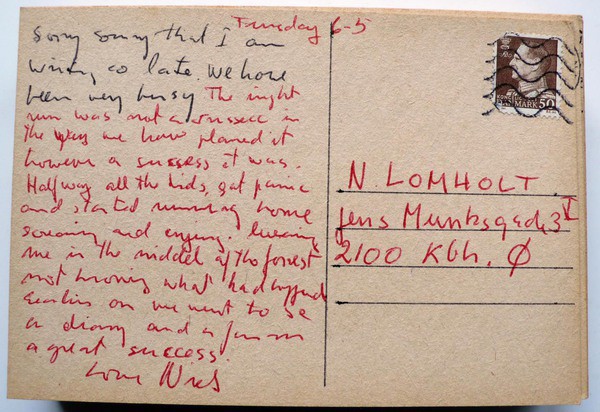 Tuesday 6-5
Sorry sorry that I am
writing so late. We have
been very busy The night
run was not a sussecc in
the way we have planed it
however a success it was.
Halfway all the kids, gat panic
and started running home
screaming and crying. leaving
me in the middel of the forrest
not knowing what had happend
Earlier on we went to se
a diary and a farm
a great success.
Love Niels
50
MARK
N. LOMHOLT.
Jens Munksgade 3 V
2100 Kbh. Ø